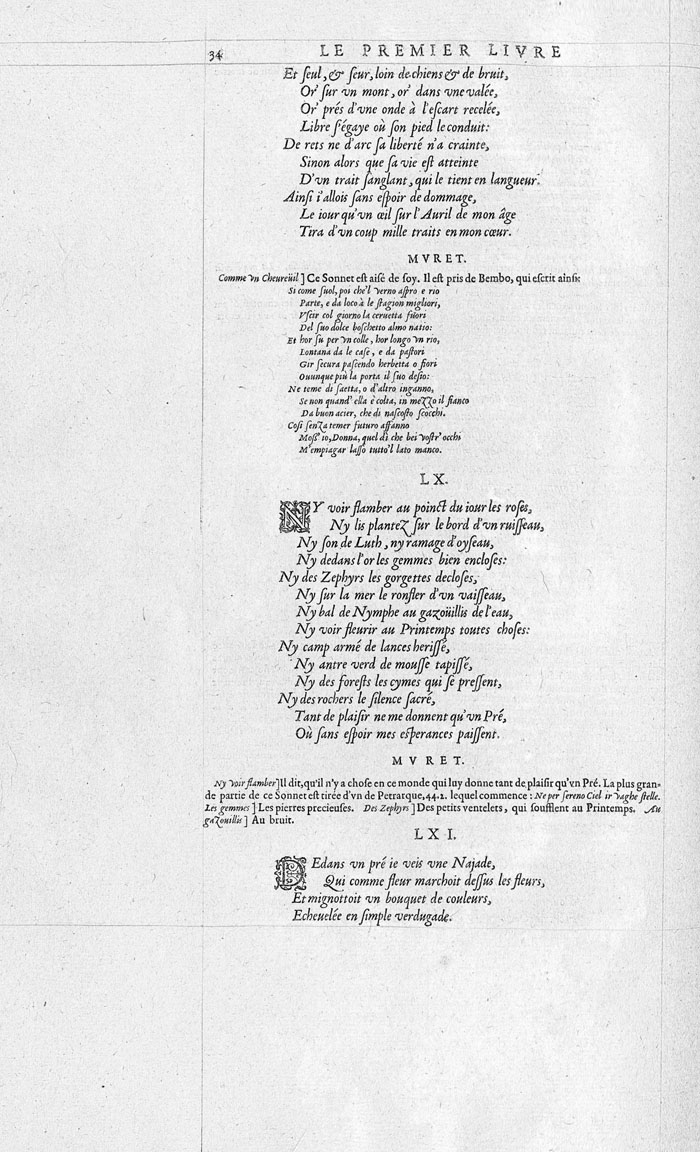 34 LE PREMIER LIVRE
Et ſeul, & ſeur, loin de chiens & de bruit,
Or' ſur vn mont, or' dans vne valée,
Or' prés d'vne onde à l'eſcart recelée,
Libre s'égaye où ſon pied le conduit:
De rets ne d'arc ſa liberté n'a crainte,
Sinon alors que ſa vie eſt atteinte
D'vn trait ſanglant, qui le tient en langueur.
Ainſi i'allois ſans eſpoir de dommage,
Le iour qu'vn œil ſur l'Auril de mon âge
Tira d'vn coup mille traits en mon cœur.
MVRET.
Comme vn Cheureüil] Ce Sonnet eſt aiſé de ſoy. Il eſt pris de Bembo, qui eſcrit ainſi:
Si come ſuol, poi che'l verno aſpro e rio
Parte, e da loco à le ſtagion migliori,
Vſcir col giorno la ceruetta fuori
Del ſuo dolce boſchetto almo natio:
Et hor ſu per vn colle, hor longo vn rio,
Lontana da le caſe, e da paſtori
Gir ſecura paſcendo herbetta o fiori
Ouunque più la porta il ſuo deſio:
Ne teme di ſaetta, o d'altro inganno,
Se non quand' ella è colta, in mezzo il fianco
Da buon acier, che di naſcoſto ſcocchi.
Coſi ſenza temer futuro affanno
Moſſ' io, Donna, quel dì che bei voſtr' occhi
M'empiagar laſſo tutto'l lato manco.
LX.
NY voir flamber au poinct du iour les roſes,
Ny lis plantez ſur le bord d'vn ruiſſeau,
Ny ſon de Luth, ny ramage d'oyſeau,
Ny dedans l'or les gemmes bien encloſes:
Ny des Zephyrs les gorgettes decloſes,
Ny ſur la mer le ronfler d'vn vaiſſeau,
Ny bal de Nymphe au gazoüillis de l'eau,
Ny voir fleurir au Printemps toutes choſes:
Ny camp armé de lances heriſſé,
Ny antre verd de mouſſe tapiſſé,
Ny des foreſts les cymes qui ſe preſſent,
Ny des rochers le ſilence ſacré,
Tant de plaiſir ne me donnent qu'vn Pré,
Où ſans eſpoir mes eſperances paiſſent.
MVRET.
Ny voir flamber] Il dit, qu'il n'y a choſe en ce monde qui luy donne tant de plaiſir qu'vn Pré. La plus gran-
de partie de ce Sonnet eſt tirée d'vn de Petrarque, 44.2. lequel commence: Ne per ſereno Ciel ir vaghe ſtelle.
Les gemmes] Les pierres precieuſes. Des Zephyrs] Des petits ventelets, qui ſoufflent au Printemps. Au
gazouillis] Au bruit.
LXI.
DEdans vn pré ie veis vne Najade,
Qui comme fleur marchoit deſſus les fleurs,
Et mignottoit vn bouquet de couleurs,
Echeuelée en ſimple verdugade.